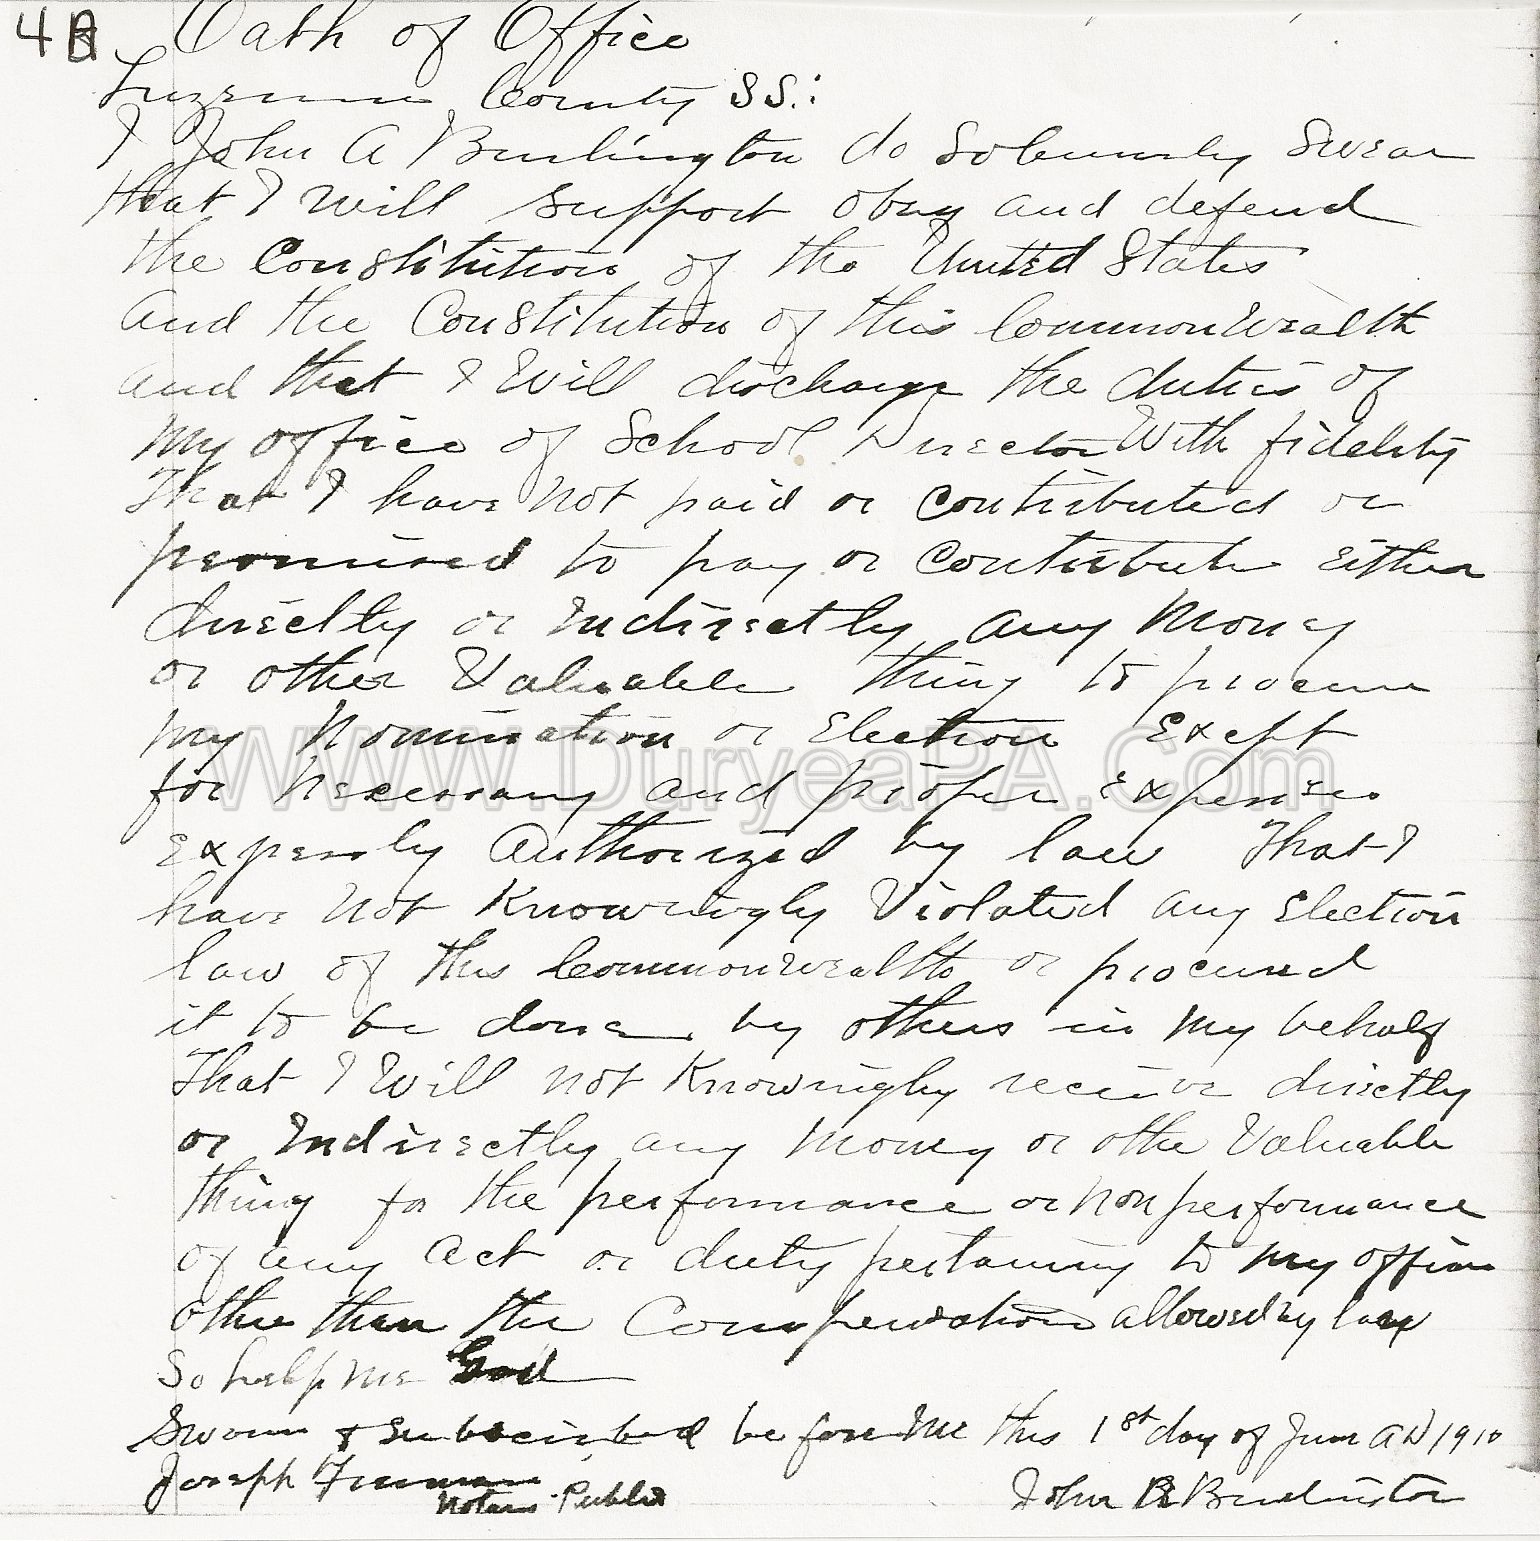 4B Oath of Office
Luzerne County SS.:
I John A Burlington do Solemnly Swear
that I Will support obey and defend
the Constitution of the United States
and the Constitution of this CommonWealth
and that I Will discharge the duties of
My office of School Director With fidelity
That I have Not paid or Contributed or
promised to pay or Contribute Either
directly or Indirectly any Money
or other Valuable thing to procure
my Nomination or Election Except
for Necessary and proper Expenses
Expressly Authorized by law That I
have Not Knowingly Violated any Election
law of this CommonWealth or procured
it to be done by others in My behalf
That I Will not Knowingly receive directly
or Indirectly any Money or othe Valuable
thing for the performance or Non performance
of any Act or duty pertaining to my office
othe than the Compensation allowed by law
So help me God
Sworn & Subscribed before Me this 1st day of June AD 1910
Joseph
Notary Public
John Burlington
www.DuryeaPA.Com